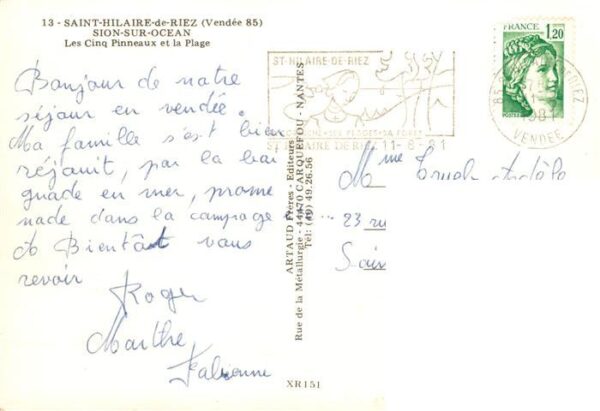 13 - SAINT-HILAIRE-de-RIEZ (Vendée 85)
SION-SUR-OCEAN
Les Cinq Pinneaux et la Plage
Bonjour de notre
séjour en vendée.
Ma famille s'est bien
réjouit, par la bai
gnade en mer, prome
nade dans la campagne
A Bientôt vous
revoir
Roger
Marthe
Fabienne
ARTAUD Frères - Editeurs
Rue de la Métallurgie - 44470 CARQUEFOU - NANTES
Tél: (40) 49.26.56
XR151
ST-HILAIRE-DE-RIEZ
SES PLAGES - SA FORET
ST HILAIRE DE RIEZ 11-8-81
FRANCE
1,20
POSTES
85
RIEZ
VENDEE
Mme
23 ru
Sain